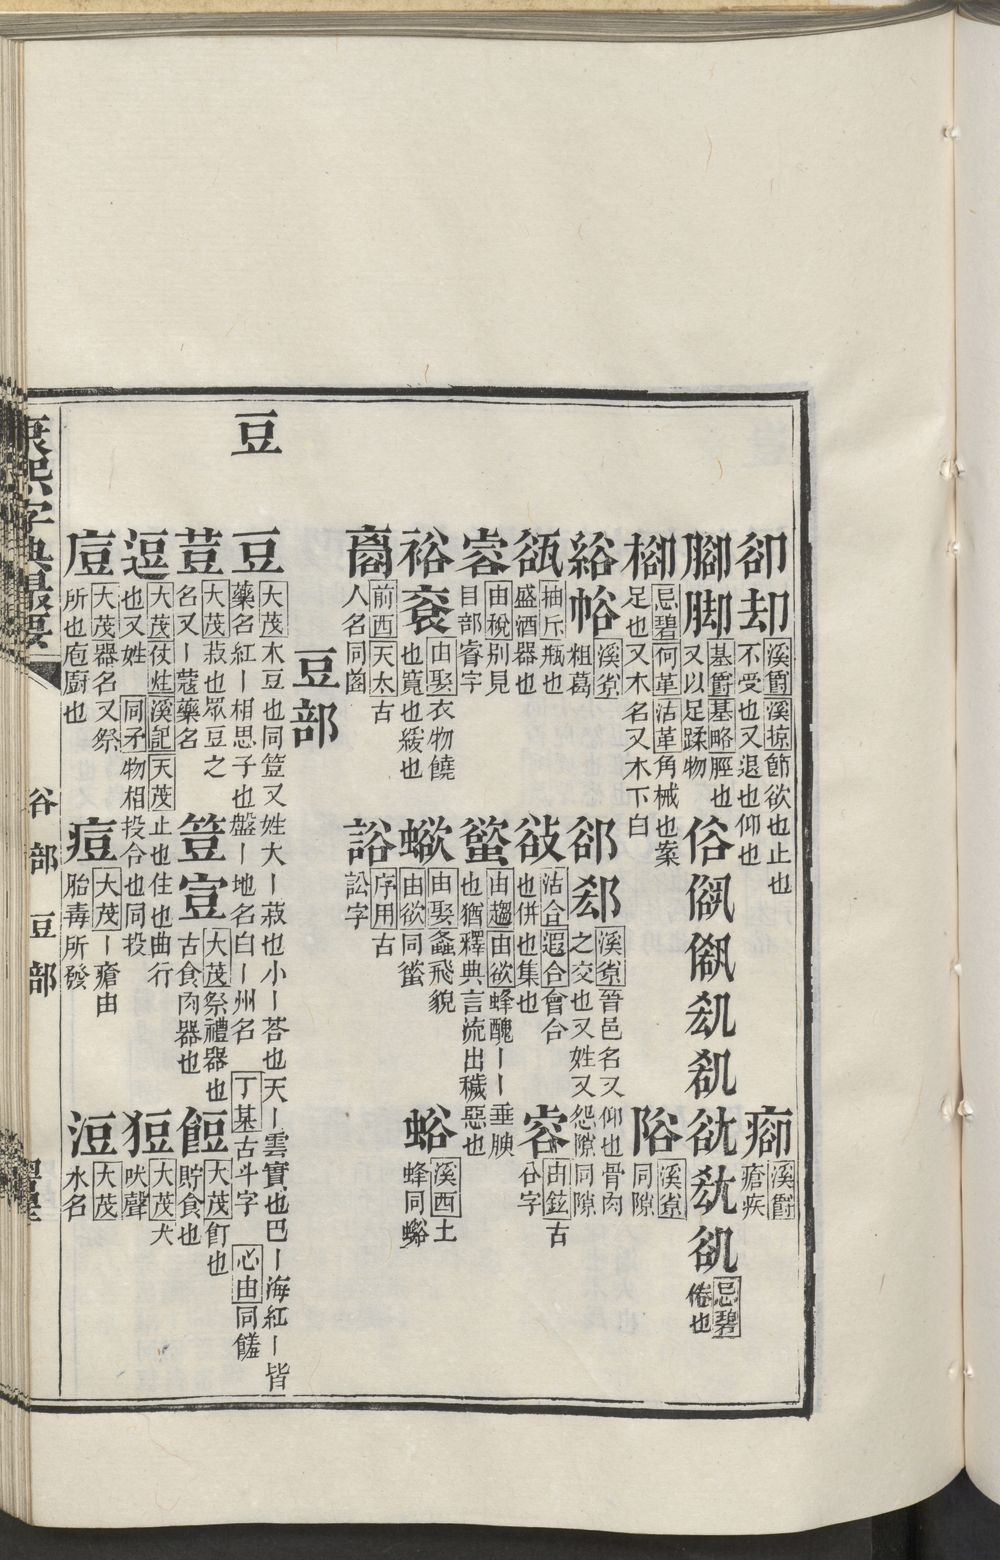 卻却 溪爵溪掠節欲也止也不受也又退也仰也
瘹 溪爵瘡疾
腳脚 基爵基略脛也又以足蹂物
俗
忌碧倦也
忌碧何革沽革角械也案足也又木名又木下白
隙 溪𧮫同隙
綌帢 溪𧮫粗葛
郤 溪𧮫晉邑名又仰也骨肉之交也又姓又怨隙同隙
瓵 柚斥瓶也盛酒器也
敆 沽合遐合會合也併也集也
容 由鉉古㕣字
睿 由稅別見目部睿字
蜸 由趨由欲蜂醜丨丨垂腴也猶釋典言流出穢惡也
裕袞 由娶衣物饒也寬也緩也
由娶螽飛貌由欲同蜸
蛒 溪酉土蜂同螸
前酉天太古人名同㕯
訟 序用古訟字
豆部
豆
豆 大茂木豆也同荳又姓大丨菽也小丨荅也天丨雲實也巴丨海紅丨皆藥名紅丨相思子也盤丨地名白丨州名 丁基古斗字 心由同饈
荳 大茂菽也眾豆之名又丨蔻藥名
豈 大茂祭禮器也古食肉器也
餖 大茂飣也貯食也
逗 大茂仗炷溪記天茂止也住也曲行也又姓 同矛物相投合也同投
㹜 大茂犬吠聲
㢄 大茂器名又祭所也庖廚也
痘 大茂丨瘡由胎毒所發
浢 大茂水名
康熙字典撮要
谷部 豆部